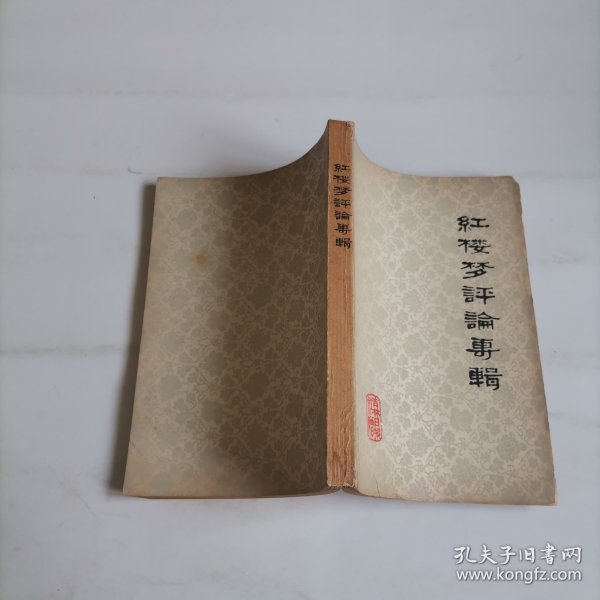 紅楼梦評論專輯
紅楼梦評論專輯
孔夫子旧书网
www.kongfz.com